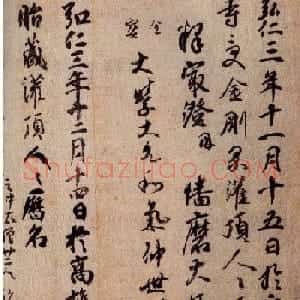 弘仁三年十一月十五日於
寺受金剛界灌頂人々
釋最澄因 播磨大
大學大允和氣仲世
弘仁三年十二月十四日於高雄
胎藏灌頂人々暦名
僧廿二人